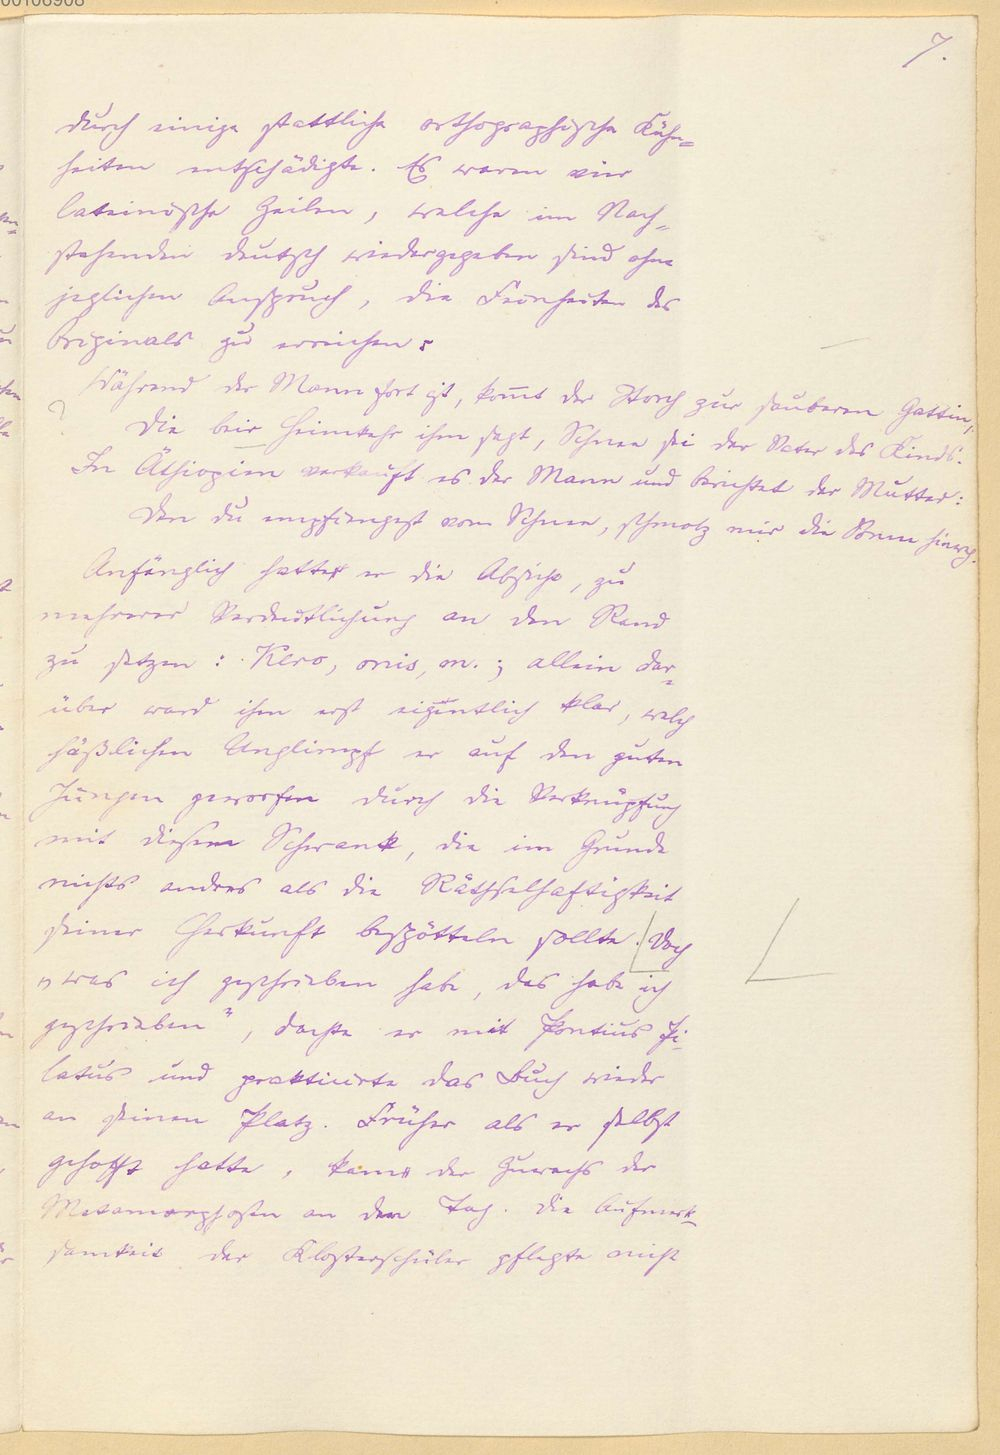 00106908
7.
durch einige stattliche orthographische Kühn=
heiten entschädigte. Es waren vier
lateinische Zeilen, welche im Nach=
stehenden deutsch wiedergegeben sind ohne
jeglichen Anspruch, die Feinheiten des
Originals zu erreichen:
Während der Mann fort ist, kom̅t der Storch zur sauberen Gattin,
?
Die beir Heimkehr ihm sagt, Schnee sei der Vater des Kinds.
In Äthiopien verkauft es der Mann und berichtet der Mutter:
Den du empfiengest vom Schnee, schmolz mir die Sonne hinweg.
Anfänglich hatte er die Absicht, zu
mehrerer Verdeutlichung an den Rand
zu setzen: Kero, onis, m.; allein dar=
über ward ihm erst eigentlich klar, welch
häßlichen Unglimpf er auf den guten
Jungen geworfen durch die Verknüpfung
mit diesem Schwank, die im Grunde
nichts andres als die Räthselhaftigkeit
seiner Herkunft bespötteln sollte. Doch
„was ich geschrieben habe, das habe ich
geschrieben", dachte er mit Pontius Pi=
latus und prakticirte das Buch wieder
an seinen Platz. Früher als er selbst
gehofft hatte, kam der Zuwachs der
Metamorphosen an den Tag. Die Aufmerk=
samkeit der Klosterschüler pflegte nicht